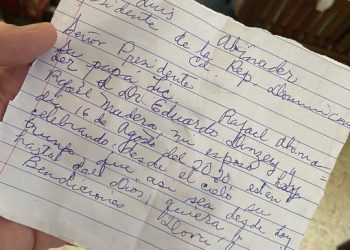 Luis Abinader
Presidente de la Rep. Dominicana
Señor Presidente Rafael Abina-
der su papá
el Dr. Eduardo y
Rafael mi esposo hoy
dia 16 de Agosto del 2020 estan
celebrando desde el cielo su
triunfo que asi sea desde hoy
hasta el Dios quiera
Bendiciones